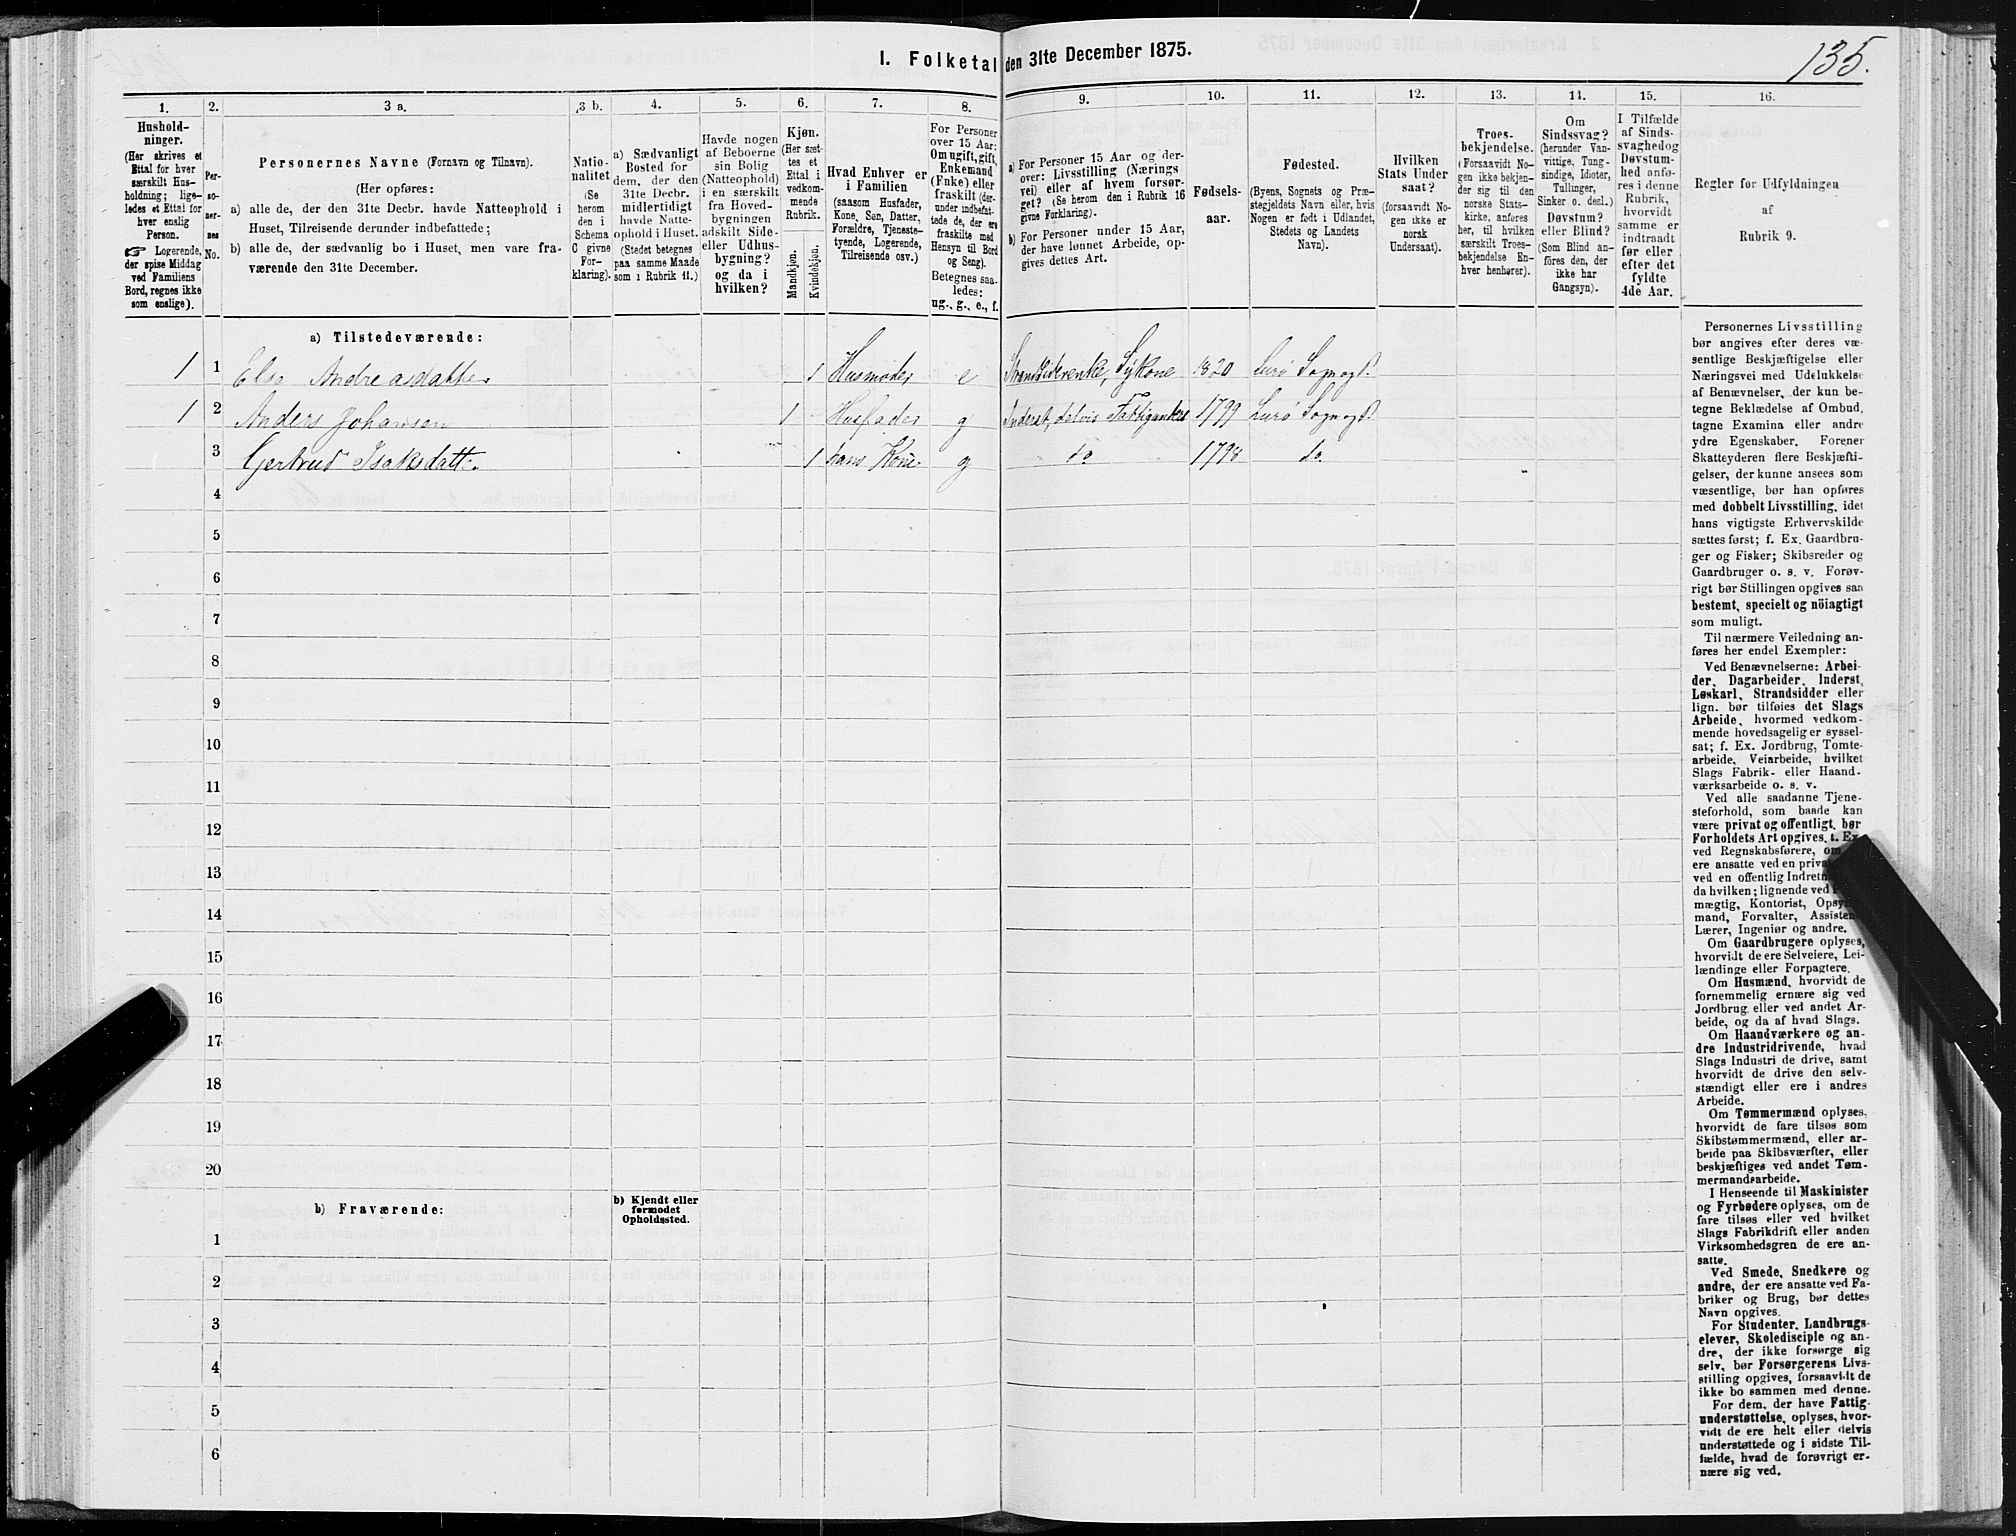 I. Folketal den 31te December 1875.
135.
1.
2.
3 a.
3 b.
4.
5.
6.
7.
8.
9.
10.
11.
12.
13.
14.
15.
16.
Hushold-
ninger.
(Her skrives et
Ettal for hver
særskilt Hus-
holdning; lige-
ledes et Ettal for
hver enslig
Person.
☞ Logerende,
der spise Middag
ved Familiens
Bord, regnes ikke
som enslige).
Per-
so-
ner-
nes
No.
Personernes Navne (Fornavn og Tilnavn).
(Her opføres:
a) alle de, der den 31te Decbr. havde Natteophold i
Huset, Tilreisende derunder indbefattede;
b) alle de, der sædvanlig bo i Huset, men vare fra-
værende den 31te December.
Natio-
nalitet
(Se
herom
den i
Schema
C givne
For-
klaring).
a) Sædvanligt
Bosted for
dem, der den
31te Decbr.
midlertidigt
havde Natte-
ophold i Huset.
(Stedet betegnes
paa samme Maade
som i Rubrik 11.)
Havde nogen
af Beboerne
sin Bolig
(Natteophold)
i en særskilt
fra Hoved-
bygningen
adskilt Side-
eller Udhus-
bygning?
og da i
hvilken?
Kjøn.
(Her sæt-
tes et
Ettal i
vedkom-
mende
Rubrik.
Mandkjøn.
Kvindekjøn.
Hvad Enhver er
i Familien
(saasom Husfader,
Kone, Søn, Datter,
Forældre, Tjeneste-
tyende, Logerende,
Tilreisende osv.)
For Personer
over 15 Aar:
Om ugift, gift,
Enkemand
(Enke) eller
fraskilt (der-
under indbefat-
tede de, der ere
fraskilte med
Hensyn til Bord
og Seng).
Betegnes saa-
ledes:
ug., g., e., f.
a) For Personer 15 Aar og der-
over: Livsstilling (Nærings
vei) eller af hvem forsør-
get? (Se herom den i Rubrik 16
givne Forklaring).
b) For Personer under 15 Aar,
der have lønnet Arbeide, op-
gives dettes Art.
Fødsels-
aar.
Fødested.
(Byens, Sognets og Præ-
stegjeldets Navn eller, hvis
Nogen er født i Udlandet,
Stedets og Landets
Navn).
Hvilken
Stats Under
saat?
(forsaavidt No-
gen ikke er
norsk
Undersaat).
Troes-
bekjendelse.
(Forsaavidt No-
gen ikke bekjen-
der sig til den
norske Stats-
kirke, anføres
her, til hvilken
særskilt Troes-
bekjendelse En-
hver henhører).
Om
Sindssvag?
(herunder Van-
vittige, Tung-
sindige, Idioter,
Tullinger,
Sinker o. desl.)
Døvstum?
eller Blind?
(Som Blind an-
føres den, der
ikke har
Gangsyn).
I Tilfælde
af Sinds-
svaghed og
Døvstum-
hed anfø-
res i denne
Rubrik,
hvorvidt
samme er
indtraadt
før eller
efter det
fyldte
4de Aar.
Regler for Udfyldningen
af
Rubrik 9.
a) Tilstedeværende:
1 1 Else Andreasdatter 1 Husmoder e Strandsidderenke, Sykone 1820 Lurø Sognogd.
1 2 Anders Johansen 1 Husfader g Inderst, delvis Fattigunders 1799 Lurø Sognogd.
3 Gertrud Isaksdatt. 1 hans Kone g do 1798 do.
4
5
6
7
8
9
10
11
12
13
14
15
16
17
18
19
20
b) Fraværende:
b) Kjendt eller
formodet
Opholdssted.
1
2
3
4
5
6
Personernes Livsstilling
bør angives efter deres væ-
sentlige Beskjæftigelse eller
Næringsvei med Udelukkelse
af Benævnelser, der kun be-
tegne Beklædelse af Ombud,
tagne Examina eller andre
ydre Egenskaber. Forener
Skatteyderen flere Beskjæfti-
gelser, der kunne ansees som
væsentlige, bør han opføres
med dobbelt Livsstilling, idet
hans vigtigste Erhvervskilde
sættes først; f. Ex. Gaardbru-
ger og Fisker; Skibsreder og
Gaardbruger o. s. v. Forøv-
rigt bør Stillingen opgives saa
bestemt, specielt og nöiagtigt
som muligt.
Til nærmere Veiledning an-
føres her endel Exempler:
Ved Benævnelserne: Arbei-
der, Dagarbeider, Inderst,
Løskarl, Strandsidder eller
lign. bør tilføies det Slags
Arbeide, hvormed vedkom-
mende hovedsagelig er syssel-
sat; f. Ex. Jordbrug, Tomte-
arbeide, Veiarbeide, hvilket
Slags Fabrik- eller Haand-
værksarbeide o. s. v.
Ved alle saadanne Tjene-
steforhold, som baade kan
være privat og offentligt, bør
Forholdets Art opgives, f. Ex.
ved Regnskabsførere, om
ere ansatte ved en privat
ved en offentlig Indretn
da hvilken; lignende ved
mægtig, Kontorist, Opsy
mand, Forvalter, Assistent
Lærer, Ingeniør og andre.
Om Gaardbrugere oplyses,
hvorvidt de ere Selveiere, Lei-
lændinge eller Forpagtere.
Om Husmænd, hvorvidt de
fornemmelig ernære sig ved
Jordbrug eller ved andet Ar-
beide, og da af hvad Slags.
Om Haandværkere og an-
dre Industridrivende, hvad
Slags Industri de drive, samt
hvorvidt de drive den selv-
stændigt eller ere i andres
Arbeide.
Om Tømmermænd oplyses,
hvorvidt de fare tilsøs som
Skibstømmermænd, eller ar-
beide paa Skibsværfter, eller
beskjæftiges ved andet Tøm-
mermandsarbeide.
I Henseende til Maskinister
og Fyrbødere oplyses, om de
fare tilsøs eller ved hvilket
Slags Fabrikdrift eller anden
Virksomhedsgren de ere an-
satte.
Ved Smede, Snedkere og
andre, der ere ansatte ved Fa-
briker og Brug, bør dettes
Navn opgives.
For Studenter, Landbrugs-
elever, Skoledisciple og an-
dre, der ikke forsørge sig
selv, bør Forsørgerens Livs-
stilling opgives, forsaavidt de
ikke bo sammen med denne.
For dem, der have Fattig-
understøttelse, oplyses, hvor-
vidt de ere helt eller delvis
understøttede og i sidste Til-
fælde, hvad de forøvrigt er-
nære sig ved.